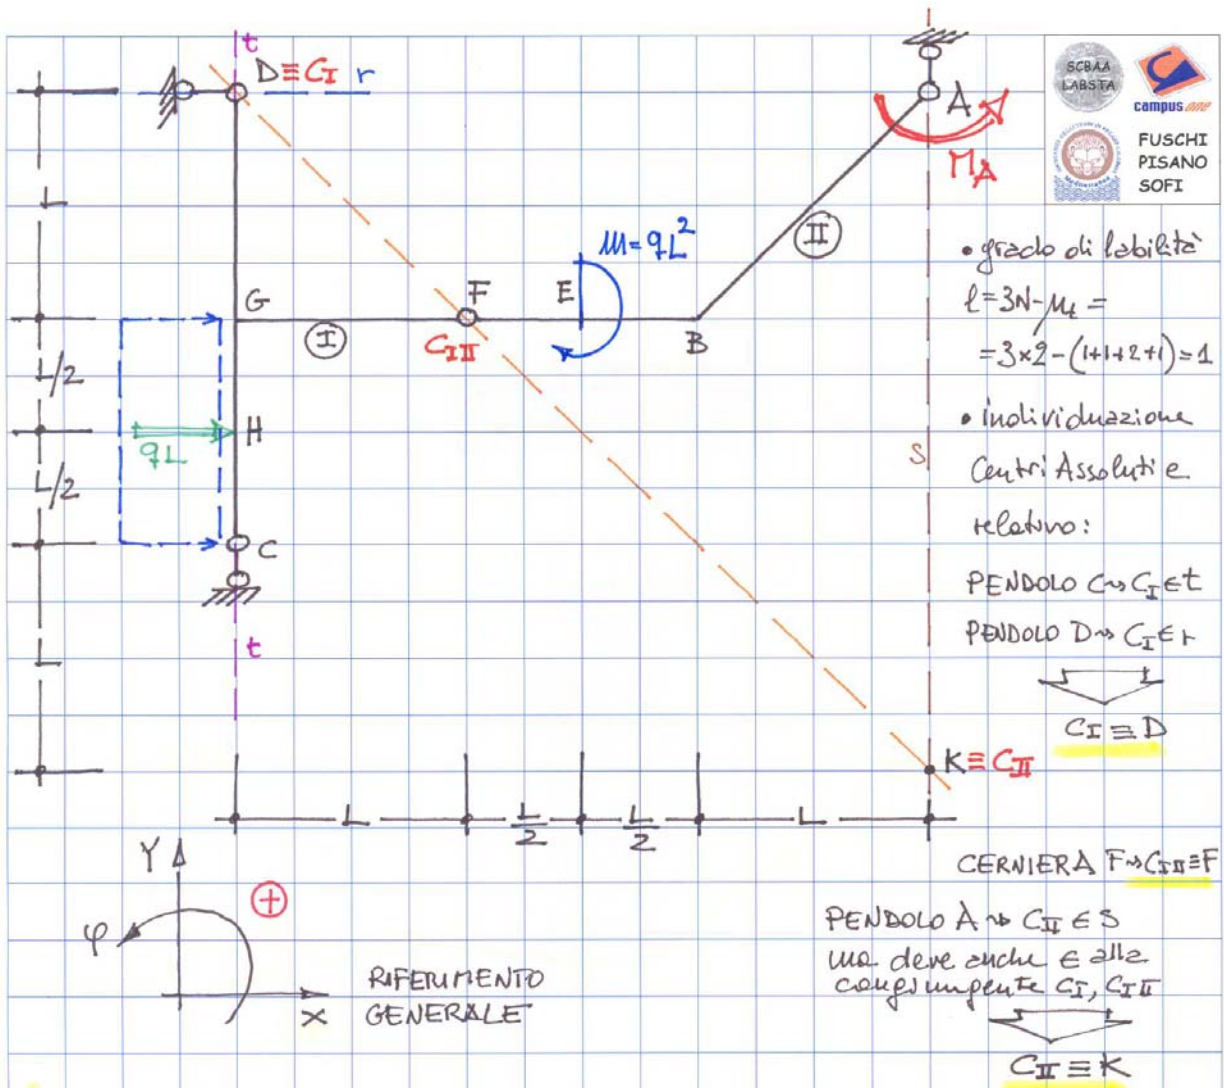 t
D≡C_I r
A
M_A
SCBAA
LABSTA
campus one
FUSCHI
PISANO
SOFI
L
II
m=qL²
G
F
E
I
C_I II
B
L/2
H
qL
L/2
C
S
t
L
K≡C_II
L
L/2
L/2
L
• grado di labilità
l=3N-μ_t =
=3×2-(1+1+2+1)=1
• individuazione
Centri Assoluti e
relativo:
PENDOLO C⇝ C_I ∈ t
PENDOLO D⇝ C_I ∈ r
C_I ≡ D
CERNIERA F⇝C_I II≡F
PENDOLO A ⇝ C_II ∈ S
ma deve anche ∈ alla
congiungente C_I, C_I II
C_II ≡ K
Y
+
φ
X
RIFERIMENTO
GENERALE